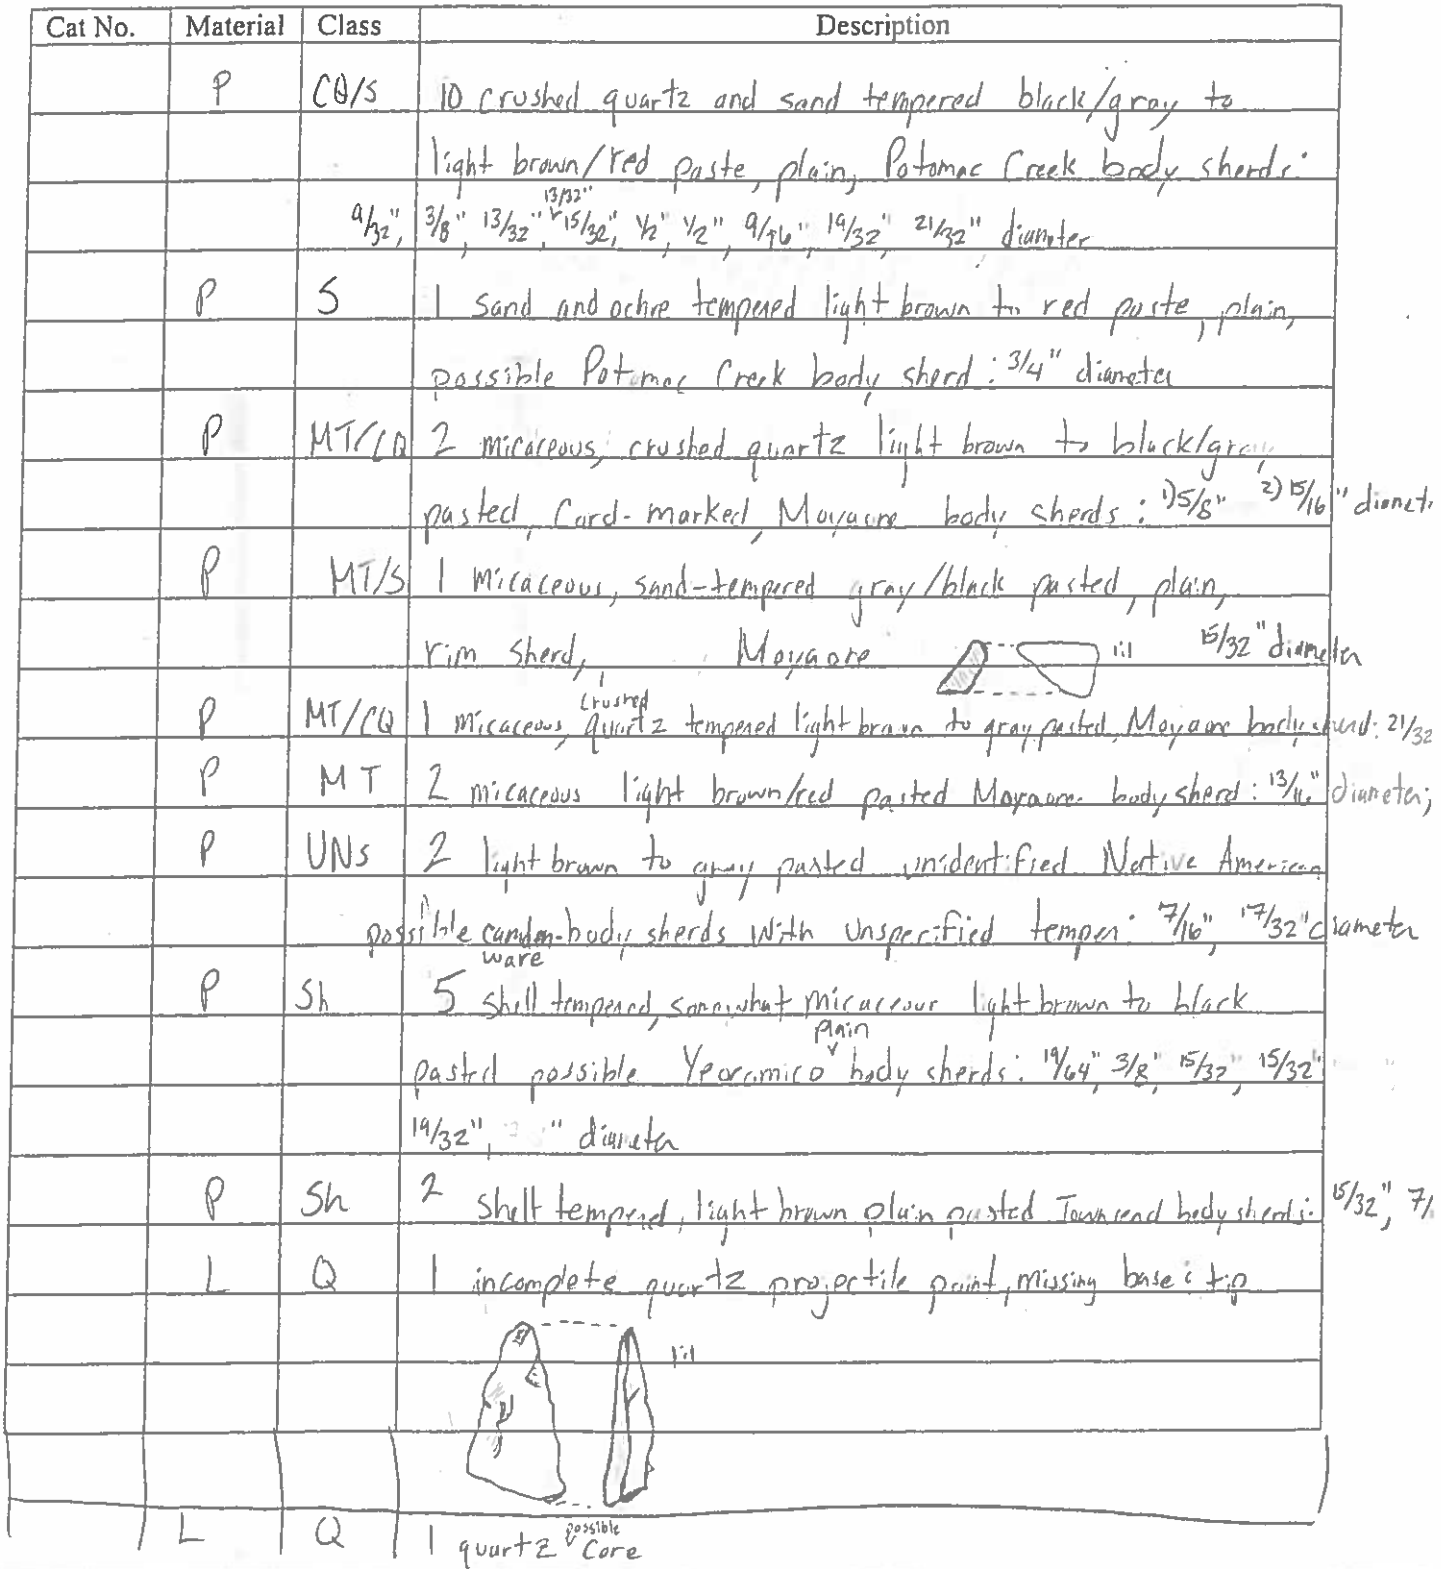 Cat No. Material Class Description
P CQ/S 10 crushed quartz and sand tempered black/gray to
light brown/red paste, plain, Potomac Creek body sherds:
13/32"
9/32", 3/8", 13/32", 15/32", 1/2", 1/2", 9/16", 19/32", 21/32" diameter
P S 1 sand and ochre tempered light brown to red paste, plain,
possible Potomac Creek body sherd: 3/4" diameter
P MT/CQ 2 micaceous, crushed quartz light brown to black/gray
pasted, Cord-marked, Moyaone body sherds: 1) 5/8" 2) 15/16" diamet
P MT/S 1 micaceous, sand-tempered gray/black pasted, plain,
rim sherd, Moyaone 1:1 15/32" diameter
crushed
P MT/CQ 1 micaceous, quartz tempered light brown to gray pasted, Moyaone body sherd: 21/32
P MT 2 micaceous light brown/red pasted Moyaone body sherd: 13/16" diameter;
P UNs 2 light brown to gray pasted unidentified Native American
possible camden-body sherds with unspecified temper: 7/16", 17/32" diameter
ware
P Sh 5 shell tempered, somewhat micaceous light brown to black
plain
pasted possible Yeocomico body sherds: 19/64", 3/8", 15/32", 15/32"
19/32", " diameter
P Sh 2 shell tempered, light brown plain pasted Townsend body sherds: 15/32", 7/
L Q 1 incomplete quartz projectile point, missing base & tip
1:1
possible
L Q 1 quartz core